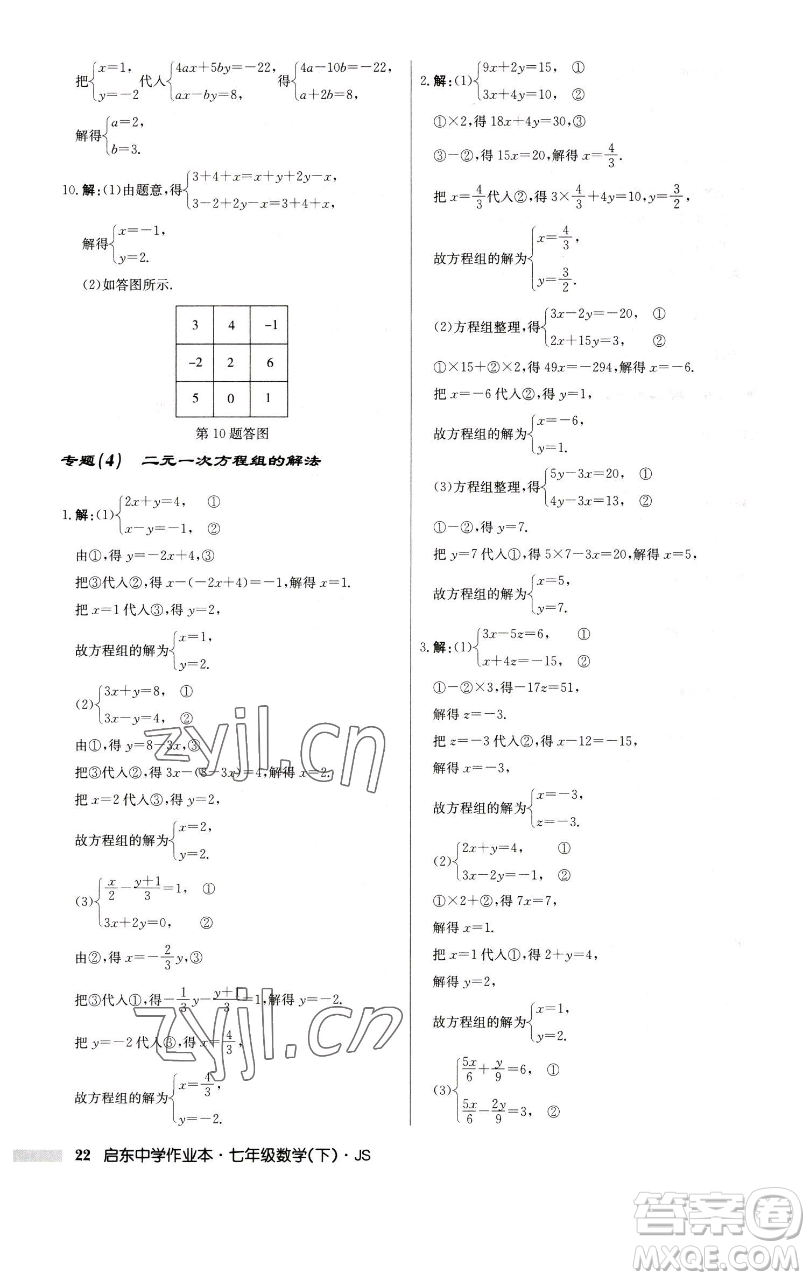 把{x=1, y=-2 代入{4ax+5by=-22, ax-by=8, 得{4a-10b=-22, a+2b=8,
解得{a=2, b=3.
10.解:(1)由题意,得{3+4+x=x+y+2y-x, 3-2+2y-x=3+4+x,
解得{x=-1, y=2.
(2)如答图所示.
3 4 -1
-2 2 6
5 0 1
第10题答图
专题(4) 二元一次方程组的解法
1.解:(1){2x+y=4, ① x-y=-1, ②
由①,得 y=-2x+4,③
把③代入②,得 x-(-2x+4)=-1,解得 x=1.
把 x=1 代入③,得 y=2,
故方程组的解为{x=1, y=2.
(2){3x+y=8, ① 3x-y=4, ②
由①,得 y=8-3x,③
把③代入②,得 3x-(8-3x)=4,解得 x=2.
把 x=2 代入③,得 y=2,
故方程组的解为{x=2, y=2.
(3){x/2-(y+1)/3=1, ① 3x+2y=0, ②
由②,得 x=-2/3y,③
把③代入①,得-1/3y-(y+1)/3=1,解得 y=-2.
把 y=-2 代入③,得 x=4/3,
故方程组的解为{x=4/3, y=-2.
22 启东中学作业本·七年级数学(下)·JS
2.解:(1){9x+2y=15, ① 3x+4y=10, ②
①×2,得 18x+4y=30,③
③-②,得 15x=20,解得 x=4/3.
把 x=4/3 代入②,得 3×4/3+4y=10,y=3/2,
故方程组的解为{x=4/3, y=3/2.
(2)方程组整理,得{3x-2y=-20, ① 2x+15y=3, ②
①×15+②×2,得 49x=-294,解得 x=-6.
把 x=-6 代入②,得 y=1,
故方程组的解为{x=-6, y=1.
(3)方程组整理,得{5y-3x=20, ① 4y-3x=13, ②
①-②,得 y=7.
把 y=7 代入①,得 5×7-3x=20,解得 x=5,
故方程组的解为{x=5, y=7.
3.解:(1){3x-5z=6, ① x+4z=-15, ②
①-②×3,得-17z=51,
解得 z=-3.
把 z=-3 代入②,得 x-12=-15,
解得 x=-3,
故方程组的解为{x=-3, z=-3.
(2){2x+y=4, ① 3x-2y=-1, ②
①×2+②,得 7x=7,
解得 x=1.
把 x=1 代入①,得 2+y=4,
解得 y=2,
故方程组的解为{x=1, y=2.
(3){5x/6+y/9=6, ① 5x/6-2y/9=3, ②
zyjl.cn
zyjl.cn
答案圈
MXQE.COM